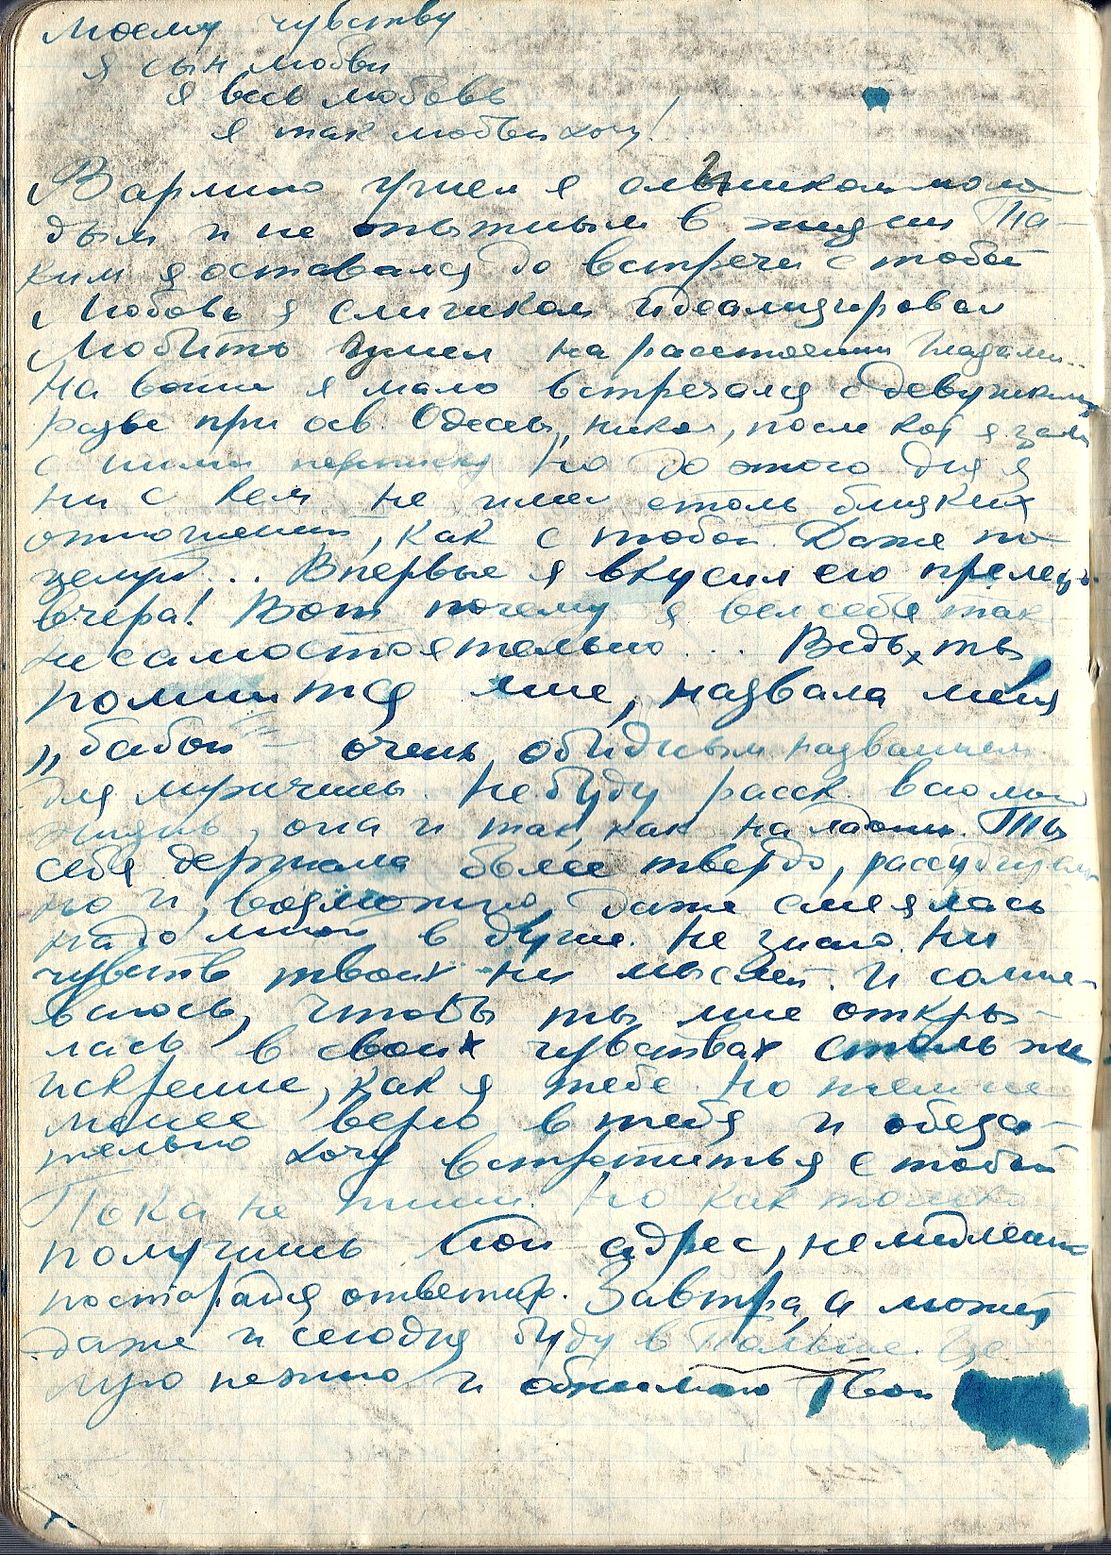 моему чувству
Я сын любви
Я весь любовь
Я так любви хочу!
В армию ушел я мало
дым и не опытным в жизни Та-
ким я оставался до встречи с тобой
Любовь я слишком идеализировал
Любить умел на расстоянии глазами...
На войне я мало встречался с девушками
разве при осв. Одессы, Никол, после кот я
с ними переписку Но до этого дня я
ни с кем не имел столь близких
отношений, как с тобой. Даже по-
целуй... Впервые я вкусил его прелесть
вчера! Вот почему я вел себя так
несамостоятельно... Ведь ты,
помнится мне, назвала меня
„бабой" – очень обидным названием
для мужчины. Не буду расск. всю мою
жизнь, она и так, как на ладони. Ты
себя держала более твердо, рассудитель
но и, возможно, даже смеялась
надо мной в душе. Не знаю ни
чувств твоих ни мыслей. И сомне-
ваюсь, чтобы ты мне откры-
лась в своих чувствах столь же
искренне, как я тебе. Но тем не
менее верю в тебя и обяза-
тельно хочу встретиться с тобой
Пока не пиши. Но как только
получишь мой адрес, немедленно
постарайся ответить. Завтра, а может
даже и сегодня буду в Польше. Це-
лую нежно и обнимаю Твой